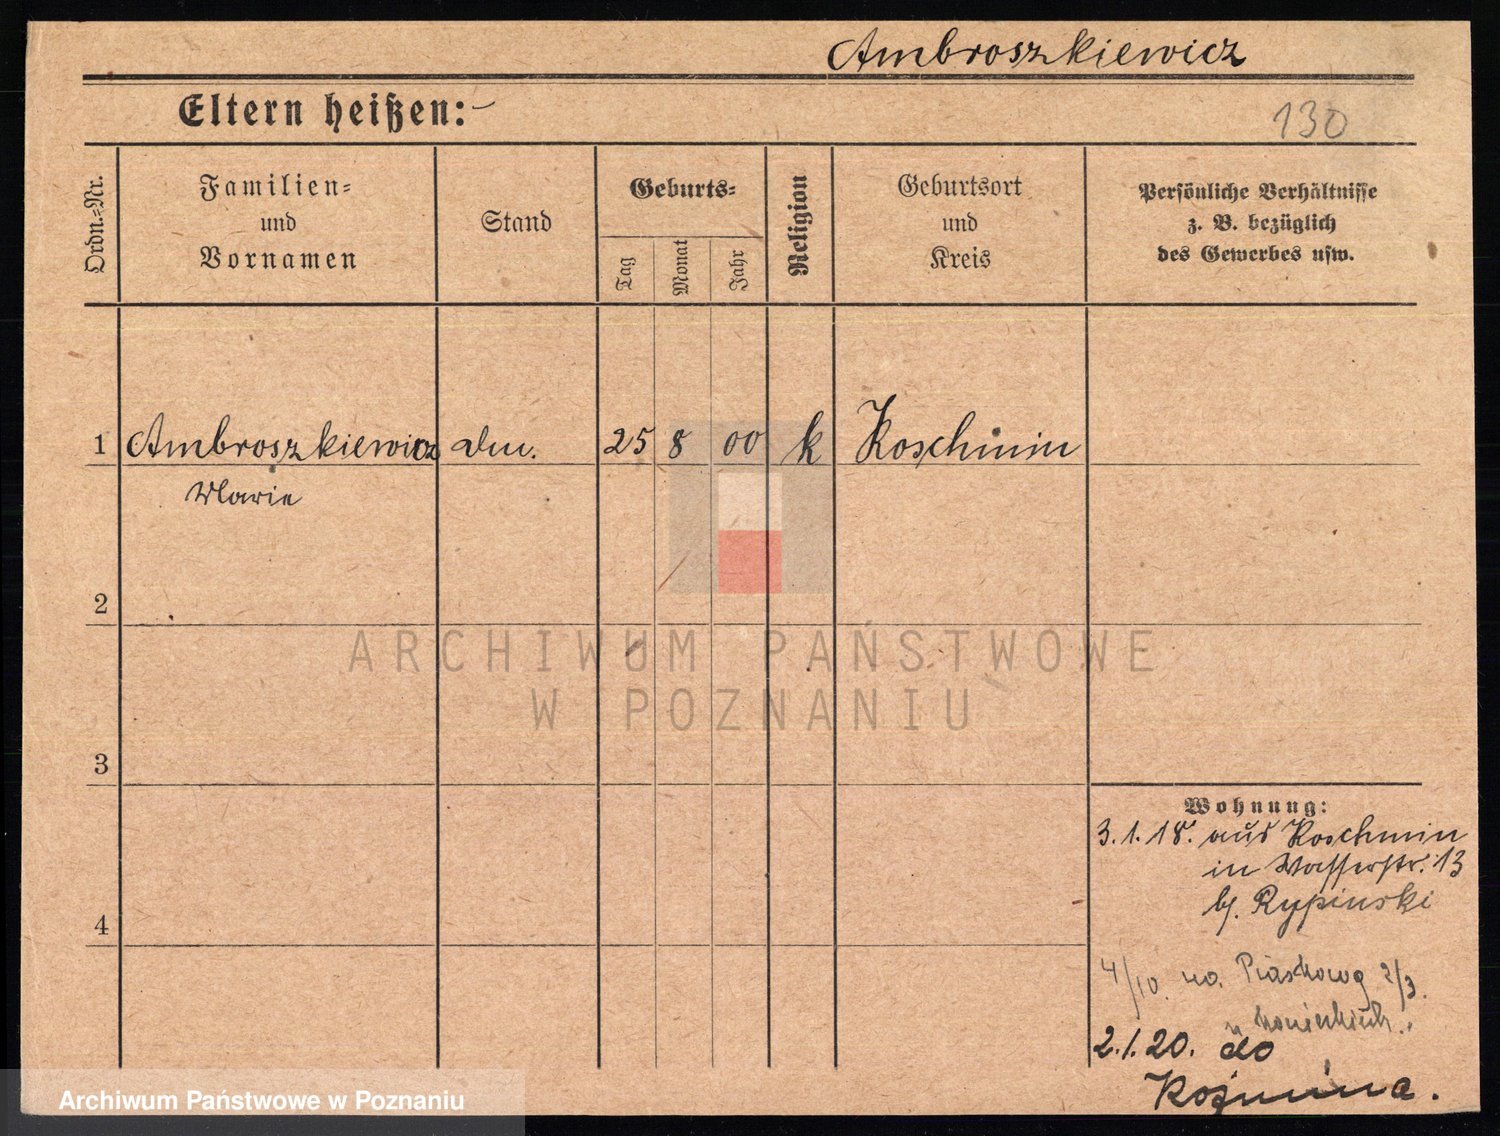 Ambroszkiewicz
Eltern heißen: -
130
Ordn.=Nr.
Familien=
und
Vornamen
Stand
Geburts=
Tag
Monat
Jahr
Religion
Geburtsort
und
Kreis
Persönliche Verhältnisse
z. B. bezüglich
des Gewerbes usw.
1 Ambroszkiewicz 25 8 00 k Koschmin
Marie
2
3
4
Wohnung:
3.1.18. aus Koschmin
in Wasserstr. 13
bj. Rypinski
4/10. na. 2/3.
2.1.20. do
Koźmina.
ARCHIWUM PAŃSTWOWE
W POZNANIU
Archiwum Państwowe w Poznaniu